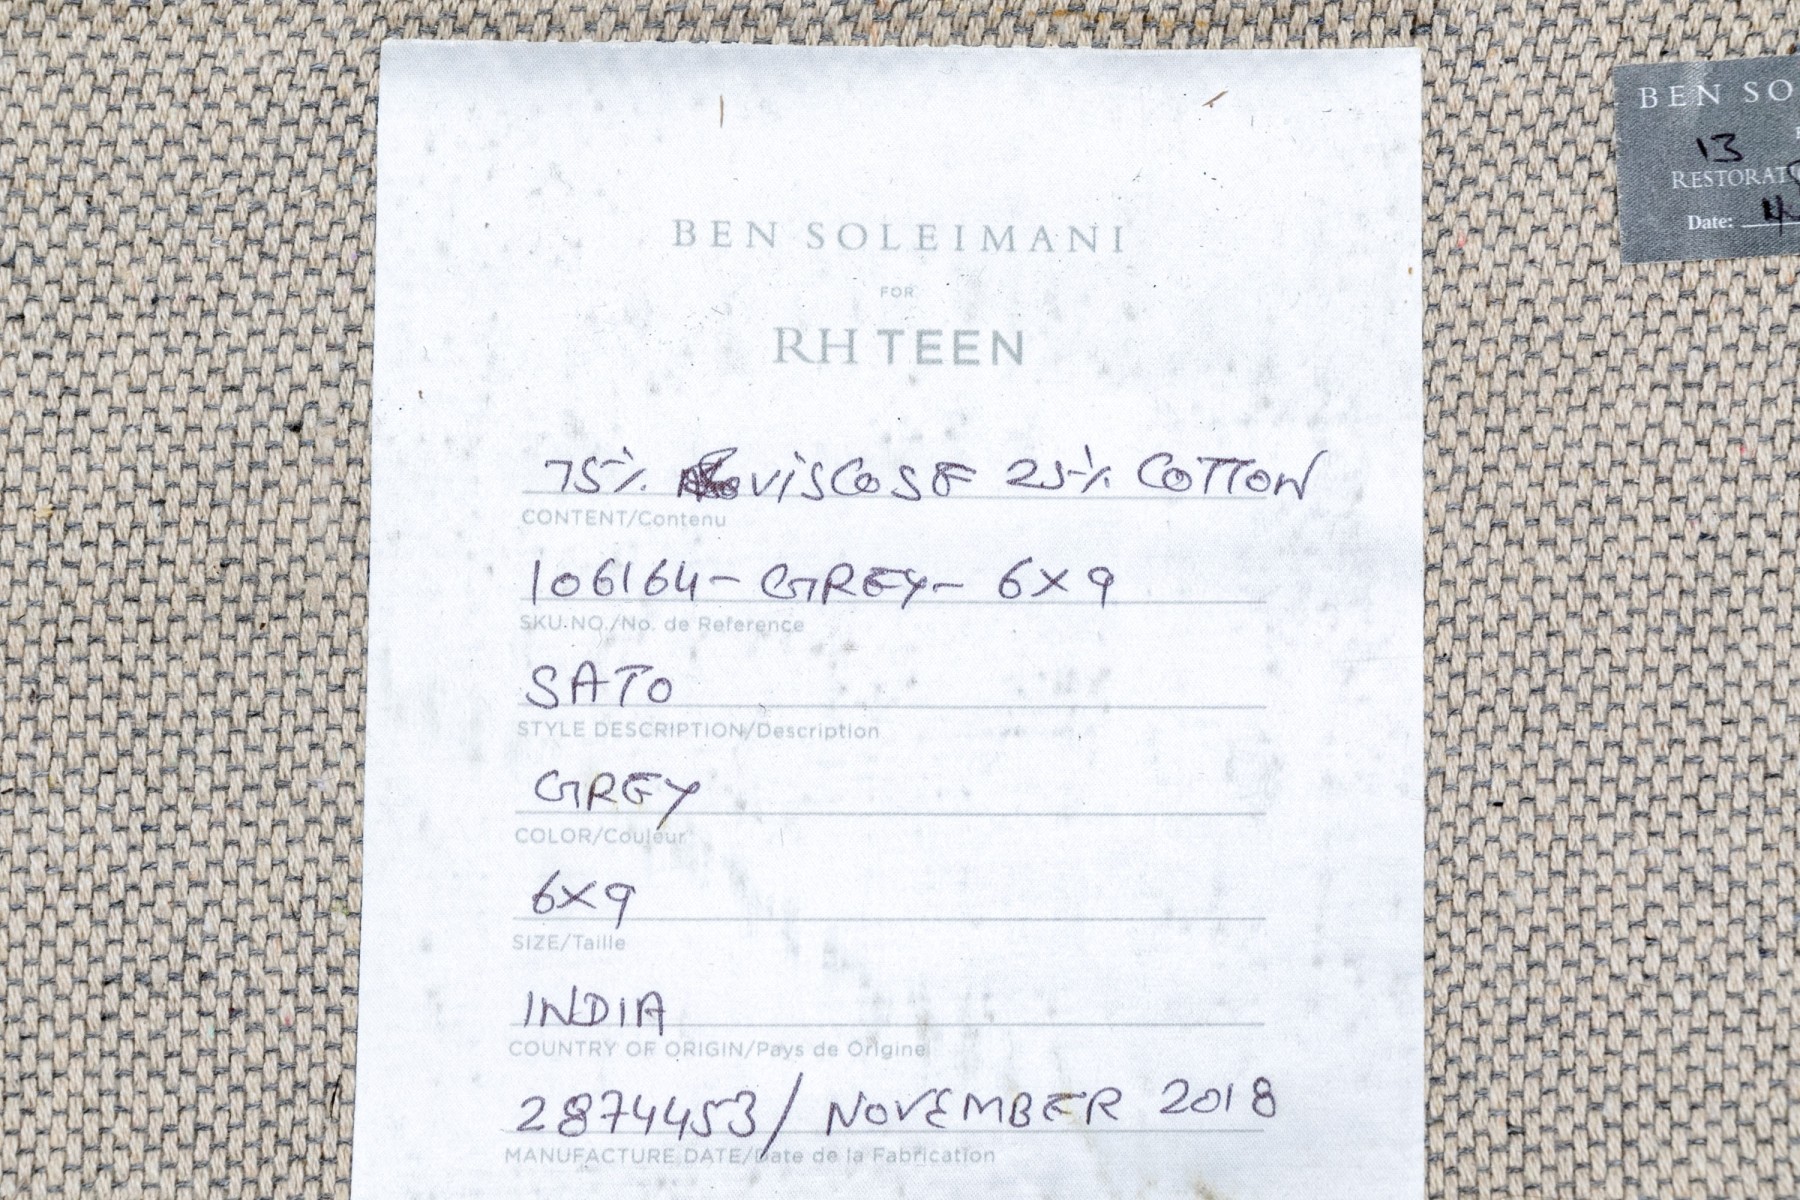 BEN SOLEIMANI
FOR
RH TEEN
75% VISCOSE 25% COTTON
CONTENT/Contenu
106164-GREY-6X9
SKU.NO./No. de Reference
SATO
STYLE DESCRIPTION/Description
GREY
COLOR/Couleur
6X9
SIZE/Taille
INDIA
COUNTRY OF ORIGIN/Pays de Origine
2874453/ NOVEMBER 2018
MANUFACTURE DATE/Date de la Fabrication
BEN SO
13
RESTORAT
Date: